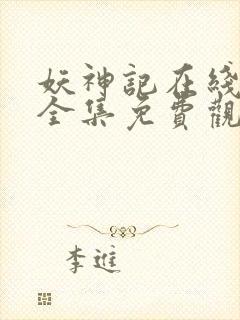 妖神記在綫
全集免費觀
李進